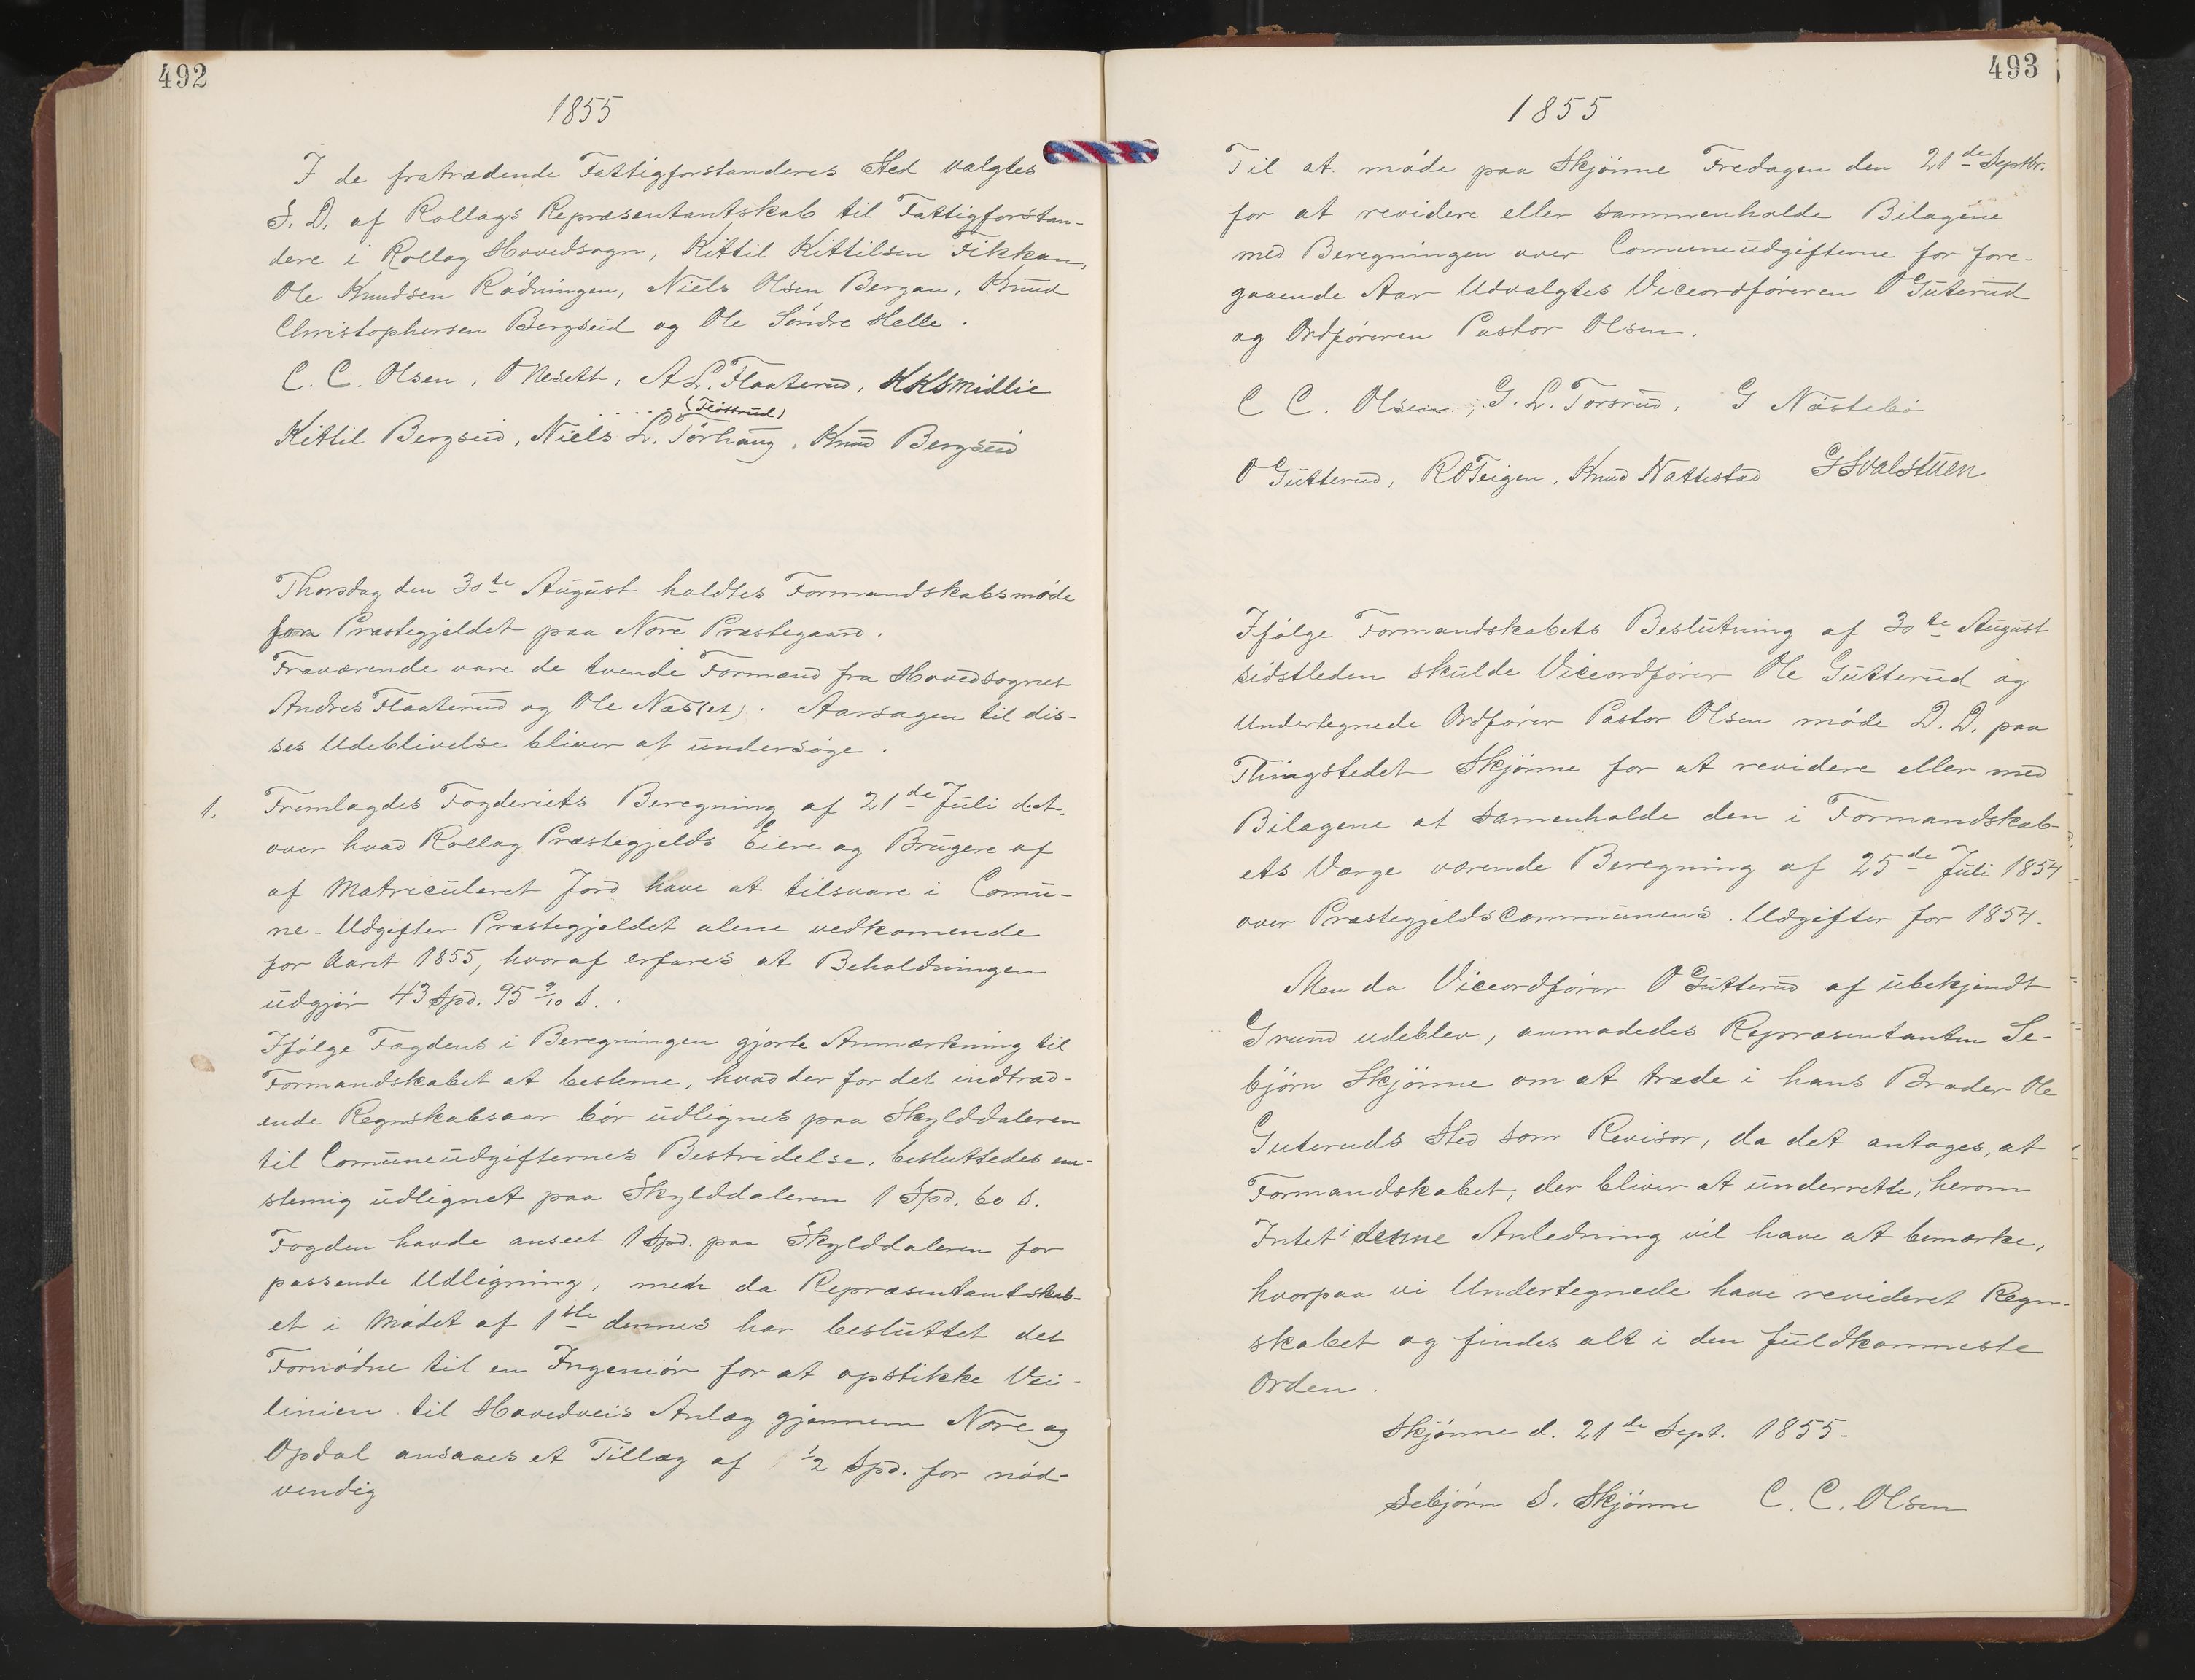 492
1855
I de fratrædende Fattigforstanderes Sted valgtes
S. D. af Rollags Repræsentantskab til Fattigforstan-
dere i Rollag Hovedsogn, Kittil Kittilsen Fikkan,
Ole Knudsen Rådningen, Niels Olsen Bergan, Knud
Christophersen Bergseid og Ole Söndre Helle.
C. C. Olsen, O Nesett, A L. Flaaterud, KKSmidlie
(Flöttrud)
Kittil Bergseid, Niels L. Törhaug, Knud Bergseid
Thorsdag den 30te August holdtes Formandskabsmøde
for Præstegjeldet paa Nore Præstegaard.
Fraværende vare de tvende Formænd fra Hovedsognet
Andres Flaaterud og Ole Næs(et). Aarsagen til dis-
ses Udeblivelse bliver at undersøge.
1. Fremlagdes Fogderiets Beregning af 21de Juli d.A.
over hvad Rollag Præstegjelds Eiere og Brugere af
af Matriculeret Jord have at tilsvare i Comu-
ne-Udgifter Præstegjeldet alene vedkomende
for Aaret 1855, hvoraf erfares at Beholdningen
udgjør 43 Spd. 95 9/10 s.
Ifølge Fogdens i Beregningen gjorte Anmærkning til
Formandskabet at besteme, hvad der for det indtræd-
ende Regnskabsaar bör udlignes paa Skylddaleren
til Comuneudgifternes Bestridelse, besluttedes een-
stemig udlignet paa Skylddaleren 1 Spd. 60 s.
Fogden havde anseet 1 Spd. paa Skylddaleren for
passende Udligning, men da Repræsentantskab-
et i Mødet af 1ste dennes har besluttet det
Fornødne til en Ingeniör for at opstikke Vei-
linien til Hovedveis Anlæg gjennem Nore og
Opdal ansaaes et Tillæg af 1/2 Spd. for nød-
vendig
493
1855
Til at møde paa Skjönne Fredagen den 21de Septbr.
for at revidere eller sammenholde Bilagene
med Beregningen over Comuneudgifterne for fore-
gaaende Aar Udvalgtes Viceordføreren O Guterud
og Ordføreren Pastor Olsen.
C C. Olsen, G. L. Torsrud, G Nöstebö
O Gutterud, R O Teigen, Knud Nattestad GSvalstuen
Ifølge Formandskabets Beslutning af 30te August
sidstleden skulde Viceordfører Ole Gutterud og
Undertegnede Ordfører Pastor Olsen møde D. D. paa
Thingstedet Skjönne for at revidere eller med
Bilagene at samenholde den i Formandskab-
ets Værge værende Beregning af 25de Juli 1854
over Præstegjeldscommunens Udgifter for 1854.
Men da Viceordfører O Gutterud af ubekjendt
Grund udeblev, anmodedes Repræsentanten Se-
björn Skjönne om at træde i hans Broder Ole
Guteruds Sted som Revisor, da det antages, at
Formandskabet, der bliver at underrette, herom
Intet i denne Anledning vil have at bemærke,
hvorpaa vi Undertegnede have revideret Regn-
skabet og findes alt i den fuldkomneste
Orden.
Skjönne d. 21de Sept. 1855.
Sebjörn S. Skjönne C. C. Olsen